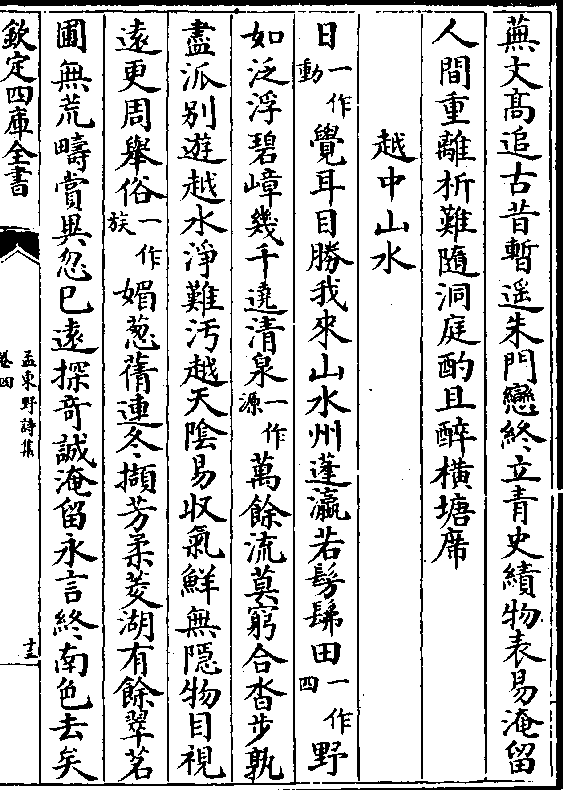 蕪文髙追古昔暫遥朱門戀終立青史績物表易淹留
人間重離析難隨洞庭酌且醉横塘席
越中山水
日一作動覺耳目勝我來山水州蓬瀛若髣髴田一作四野
如泛浮碧嶂幾千遶清泉一作源萬餘流莫窮合沓步孰
盡派别遊越水淨難汚越天陰易収氣鮮無隠物目視
逺更周舉俗一作族媚葱蒨連冬擷芳柔菱湖有餘翠茗
圃無荒疇賞異忽已逺探奇誠淹留永言終南色去矣
欽定四庫全書
孟東野詩集
卷四
十三